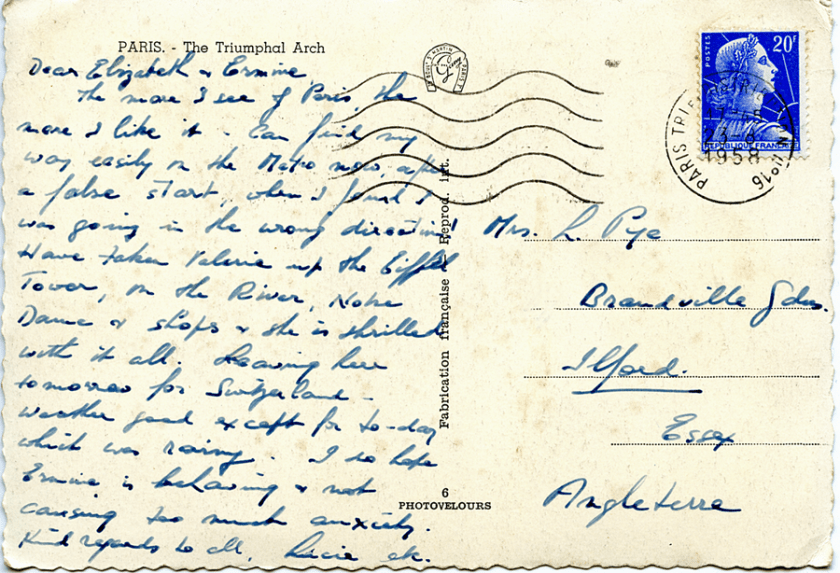 PARIS. - The Triumphal Arch
Dear Elizabeth & Ermine
The more I see of Paris, the
more I like it - Can find my
way easily on the Metro now, after
a false start, when I found I
was going in the wrong direction!
Have taken Valerie up the Eiffel
Tower, on the River, Notre
Dame & shops & she is thrilled
with it all. Leaving here
tomorrow for Switzerland -
weather good except for to-day
which was rainy. I do hope
Ermine is behaving & not
causing too much anxiety.
Kind regards to all, Lucie
Fabrication française Reprod. int.
6
PHOTOVELOURS
POSTES
20F
REPUBLIQUE FRANÇAISE
PARIS
1958
N°16
Mrs. L. Pye
Brandville Gdns.
Ilford.
Essex
Angleterre